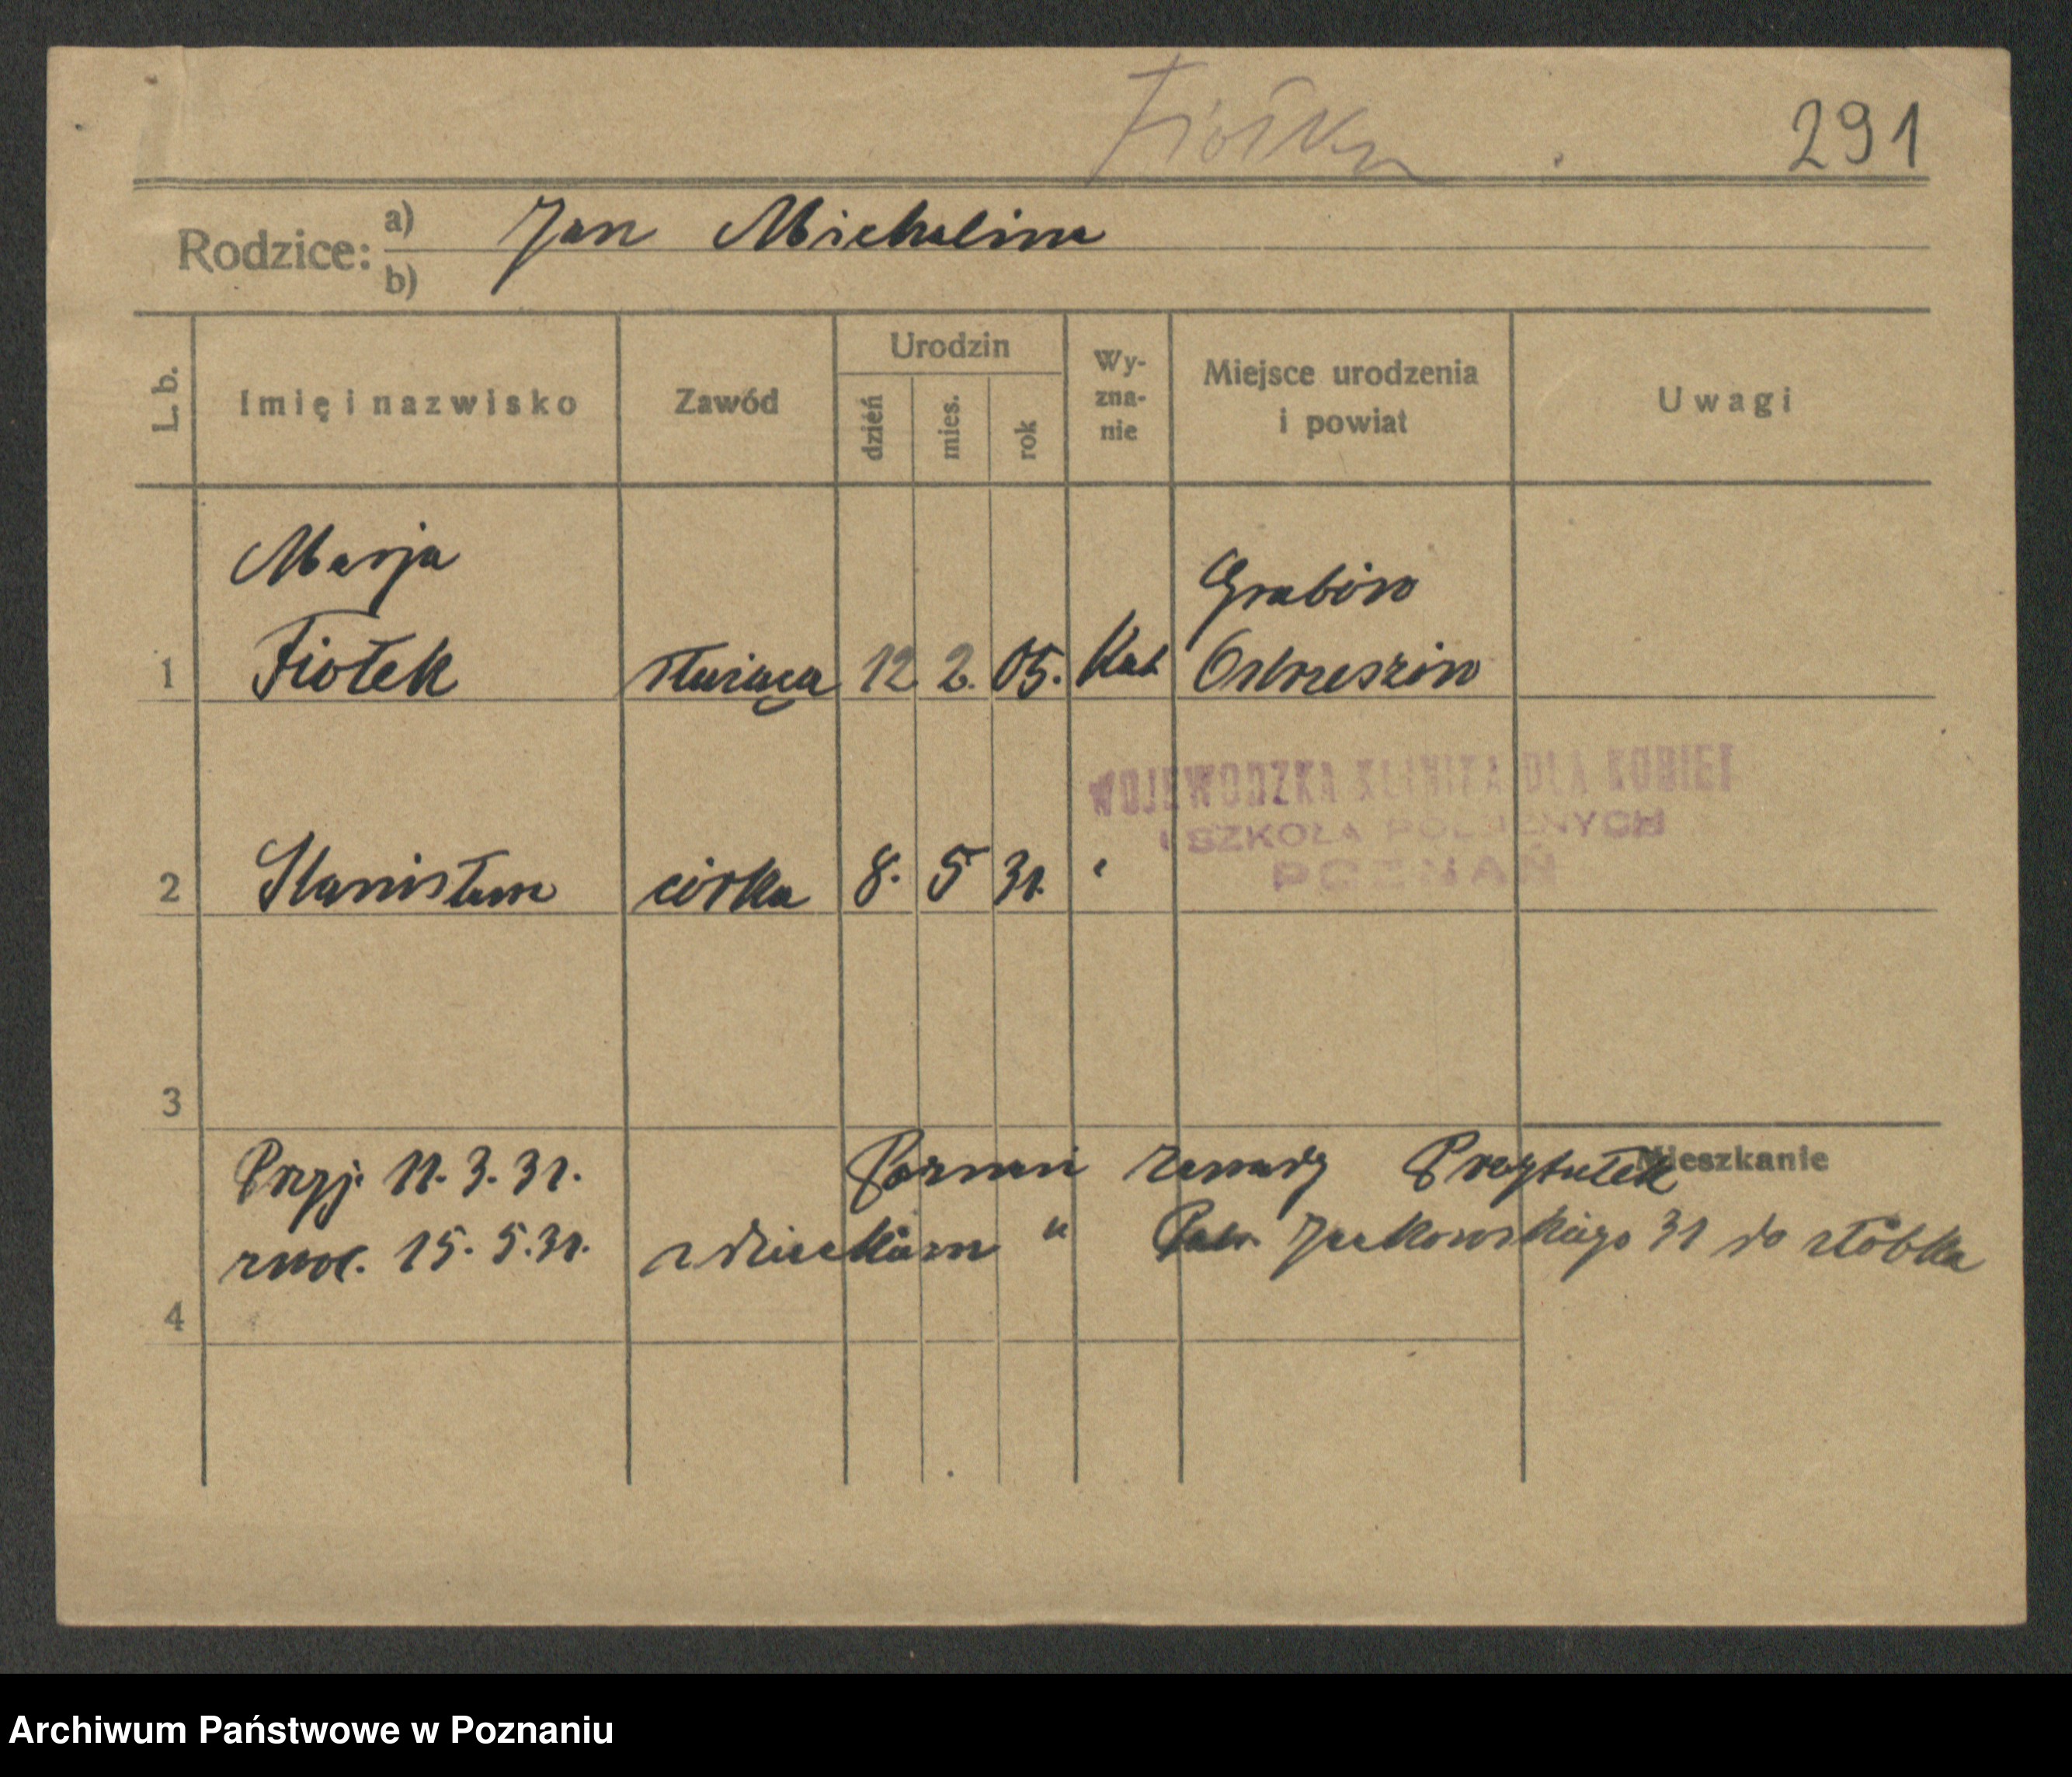 Fiołek
291
Rodzice: a) Jan Michalina
b)
L. b. Imię i nazwisko Zawód Urodzin dzień mies. rok Wyznanie Miejsce urodzenia i powiat Uwagi
Marja Grabów
1 Fiołek służąca 12 2. 05. Kat Ostrzeszów
WOJEWODZKA KLINIKA DLA KOBIET
I SZKOŁA POŁOŻNYCH
POZNAŃ
2 Stanisława córka 8. 5 31. "
3
Mieszkanie
Przyj. 11. 3. 31. Poznań Zawady Przytułek
zwol. 15. 5. 31. z dzieckiem " Jackowskiego 31 do żłóbka
4
Archiwum Państwowe w Poznaniu